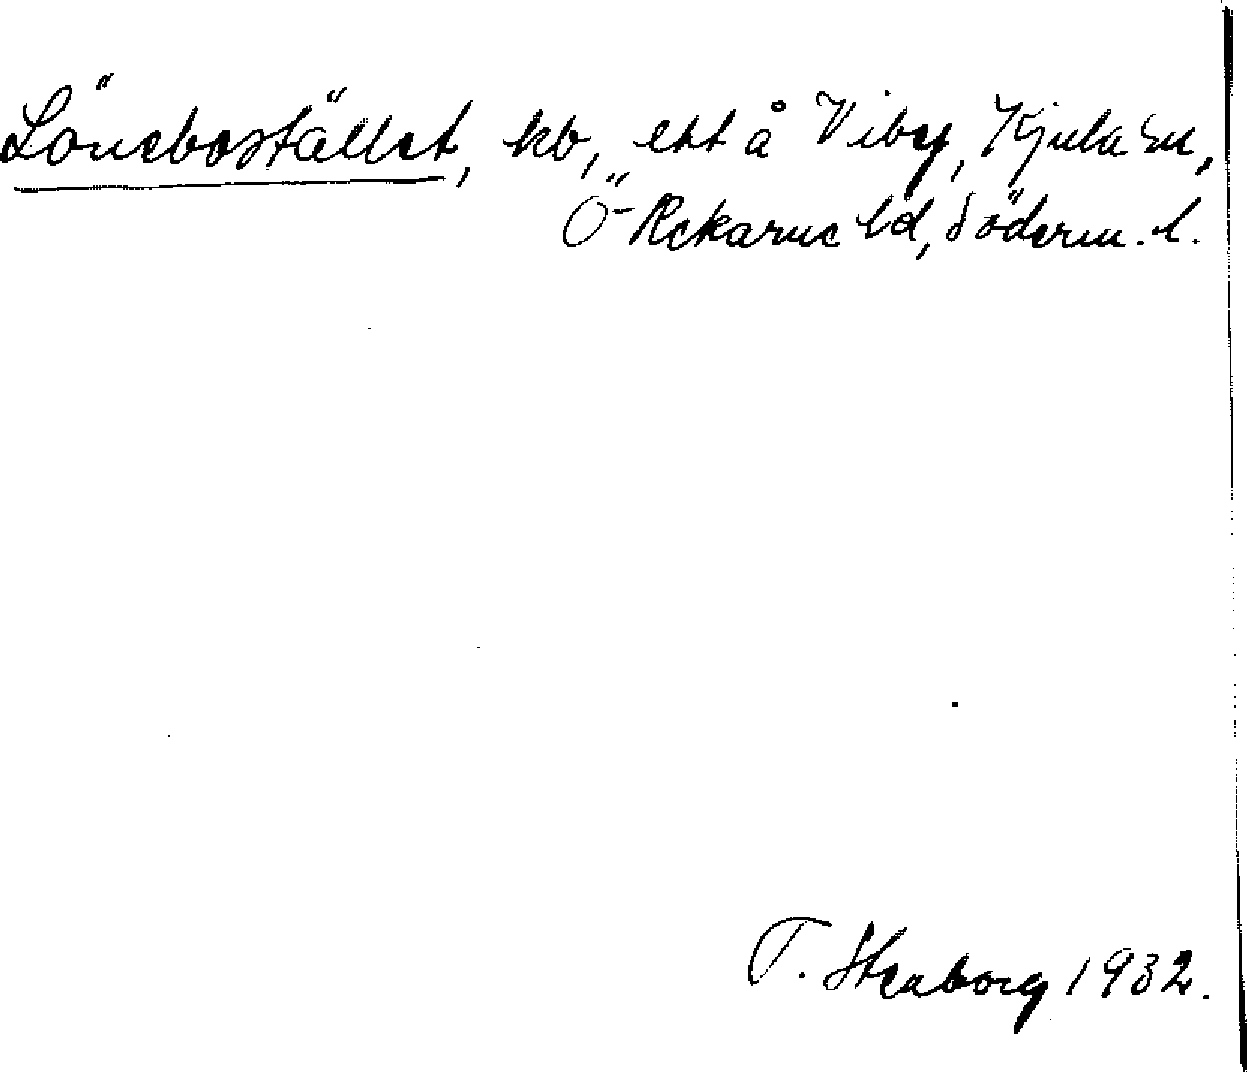 Lönebostället, kb, ett å Viby, Kjula sn,
Ö-Rekarne hd, Söderm. l.
T. Stenborg 1932.